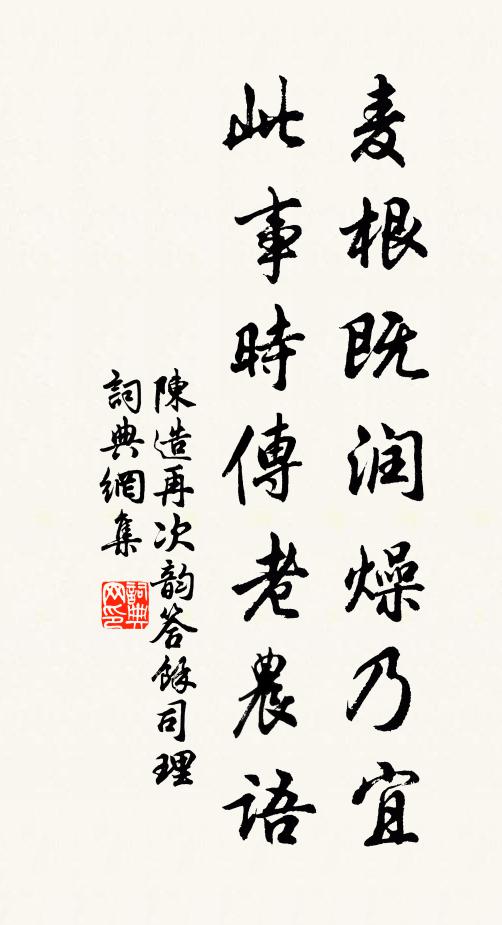 麦根既润燥乃宜
此事時傳老農語
陳造再次韵答餘司理
詞典網集
詞典网印